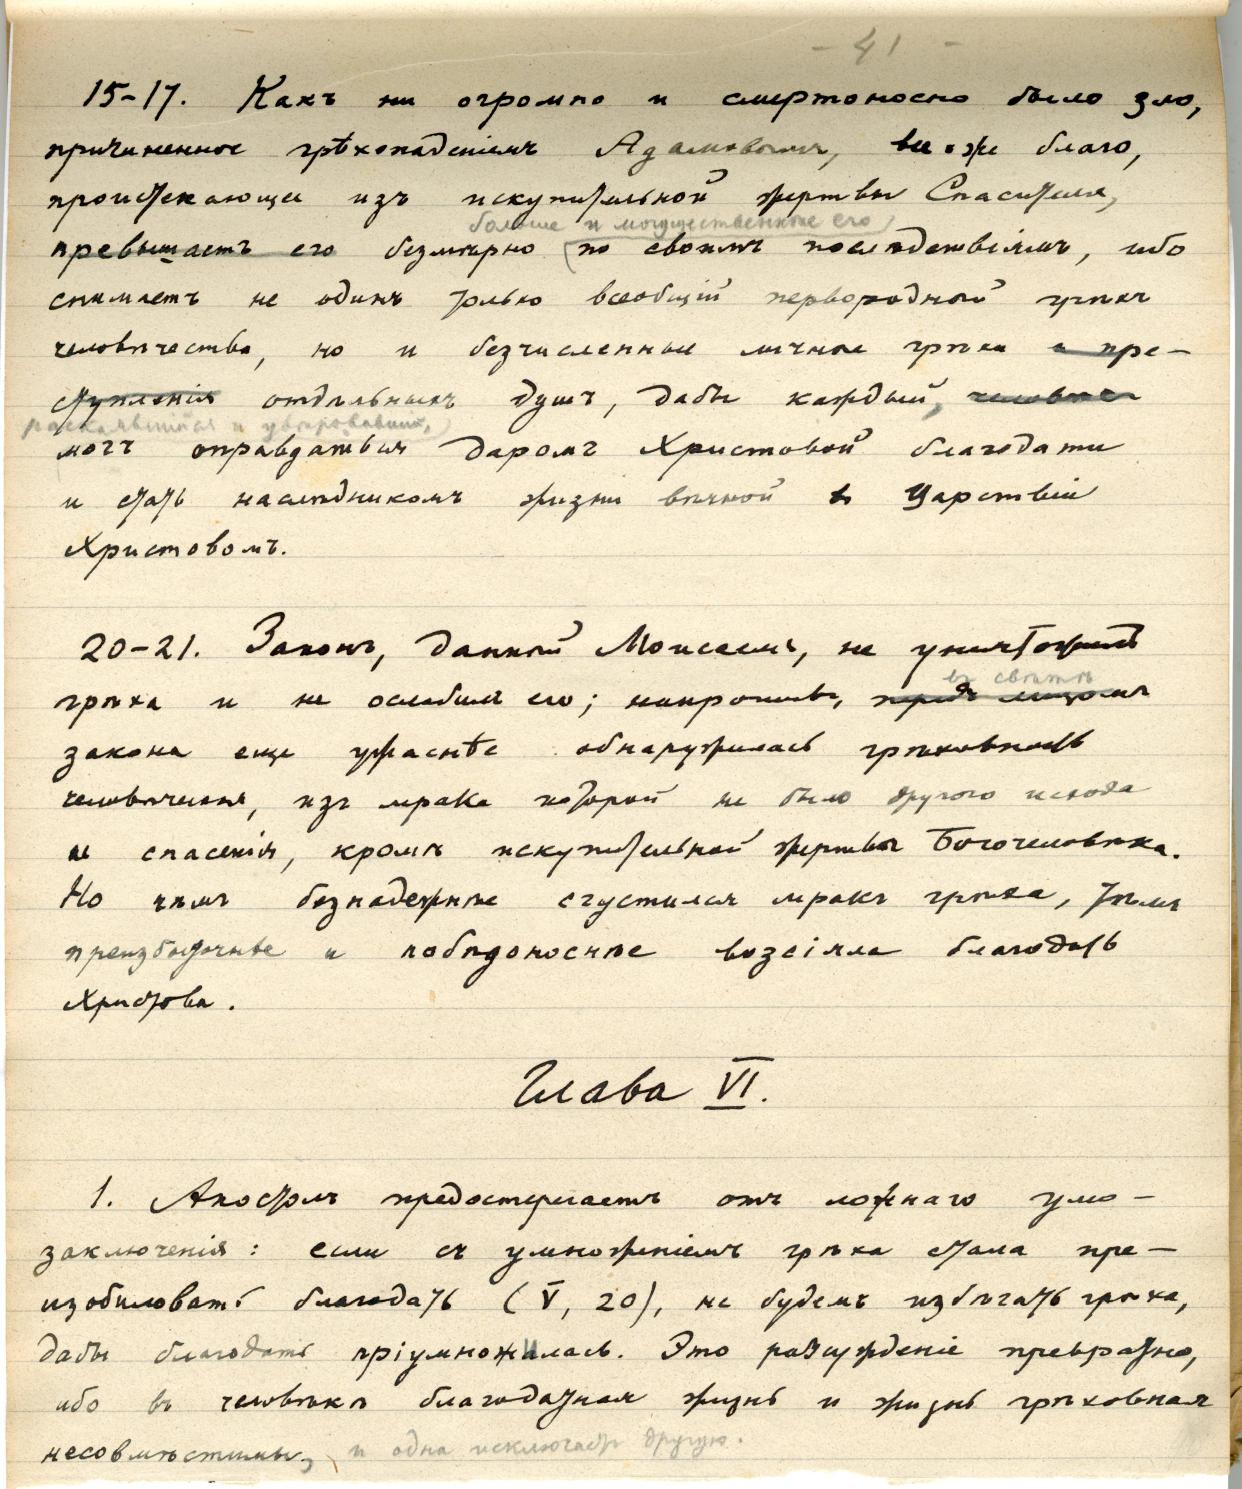 - 41 -
15-17. Какъ ни огромно и смертоносно было зло,
причиненное грѣхопаденіемъ Адамовымъ, все же благо,
проистекающее изъ искупительной жертвы Спасителя,
больше и могущественнѣе его
превышаетъ его безмѣрно по своимъ послѣдствіямъ, ибо
снимаетъ не одинъ только всеобщій первородный грѣхъ
человѣчества, но и безчисленные личные грѣхи и пре-
ступленія отдѣльныхъ душъ, дабы каждый, человѣкъ
раскаявшійся и увѣровавшій,
могъ оправдаться даромъ Христовой благодати
и стать наслѣдникомъ жизни вѣчной въ Царствіи
Христовомъ.
20-21. Законъ, данный Моисеемъ, не уничтожилъ
въ свѣтѣ
грѣха и не ослабилъ его; напротивъ, предъ лицомъ
закона еще ужаснѣе обнаружилась грѣховность
человѣческая, изъ мрака которой не было другого исхода
и спасенія, кромѣ искупительной жертвы Богочеловѣка.
Но чѣмъ безнадежнѣе сгустился мракъ грѣха, тѣмъ
преизбыточнѣе и побѣдоноснѣе возсіяла благодать
Христова.
Глава VI.
1. Апостолъ предостерегаетъ отъ ложнаго умо-
заключенія: если съ умноженіемъ грѣха стала пре-
изобиловать благодать (V, 20), не будемъ избѣгать грѣха,
дабы благодать пріумножилась. Это разсужденіе превратно,
ибо въ человѣкѣ благодатная жизнь и жизнь грѣховная
несовмѣстимы, и одна исключаетъ другую.